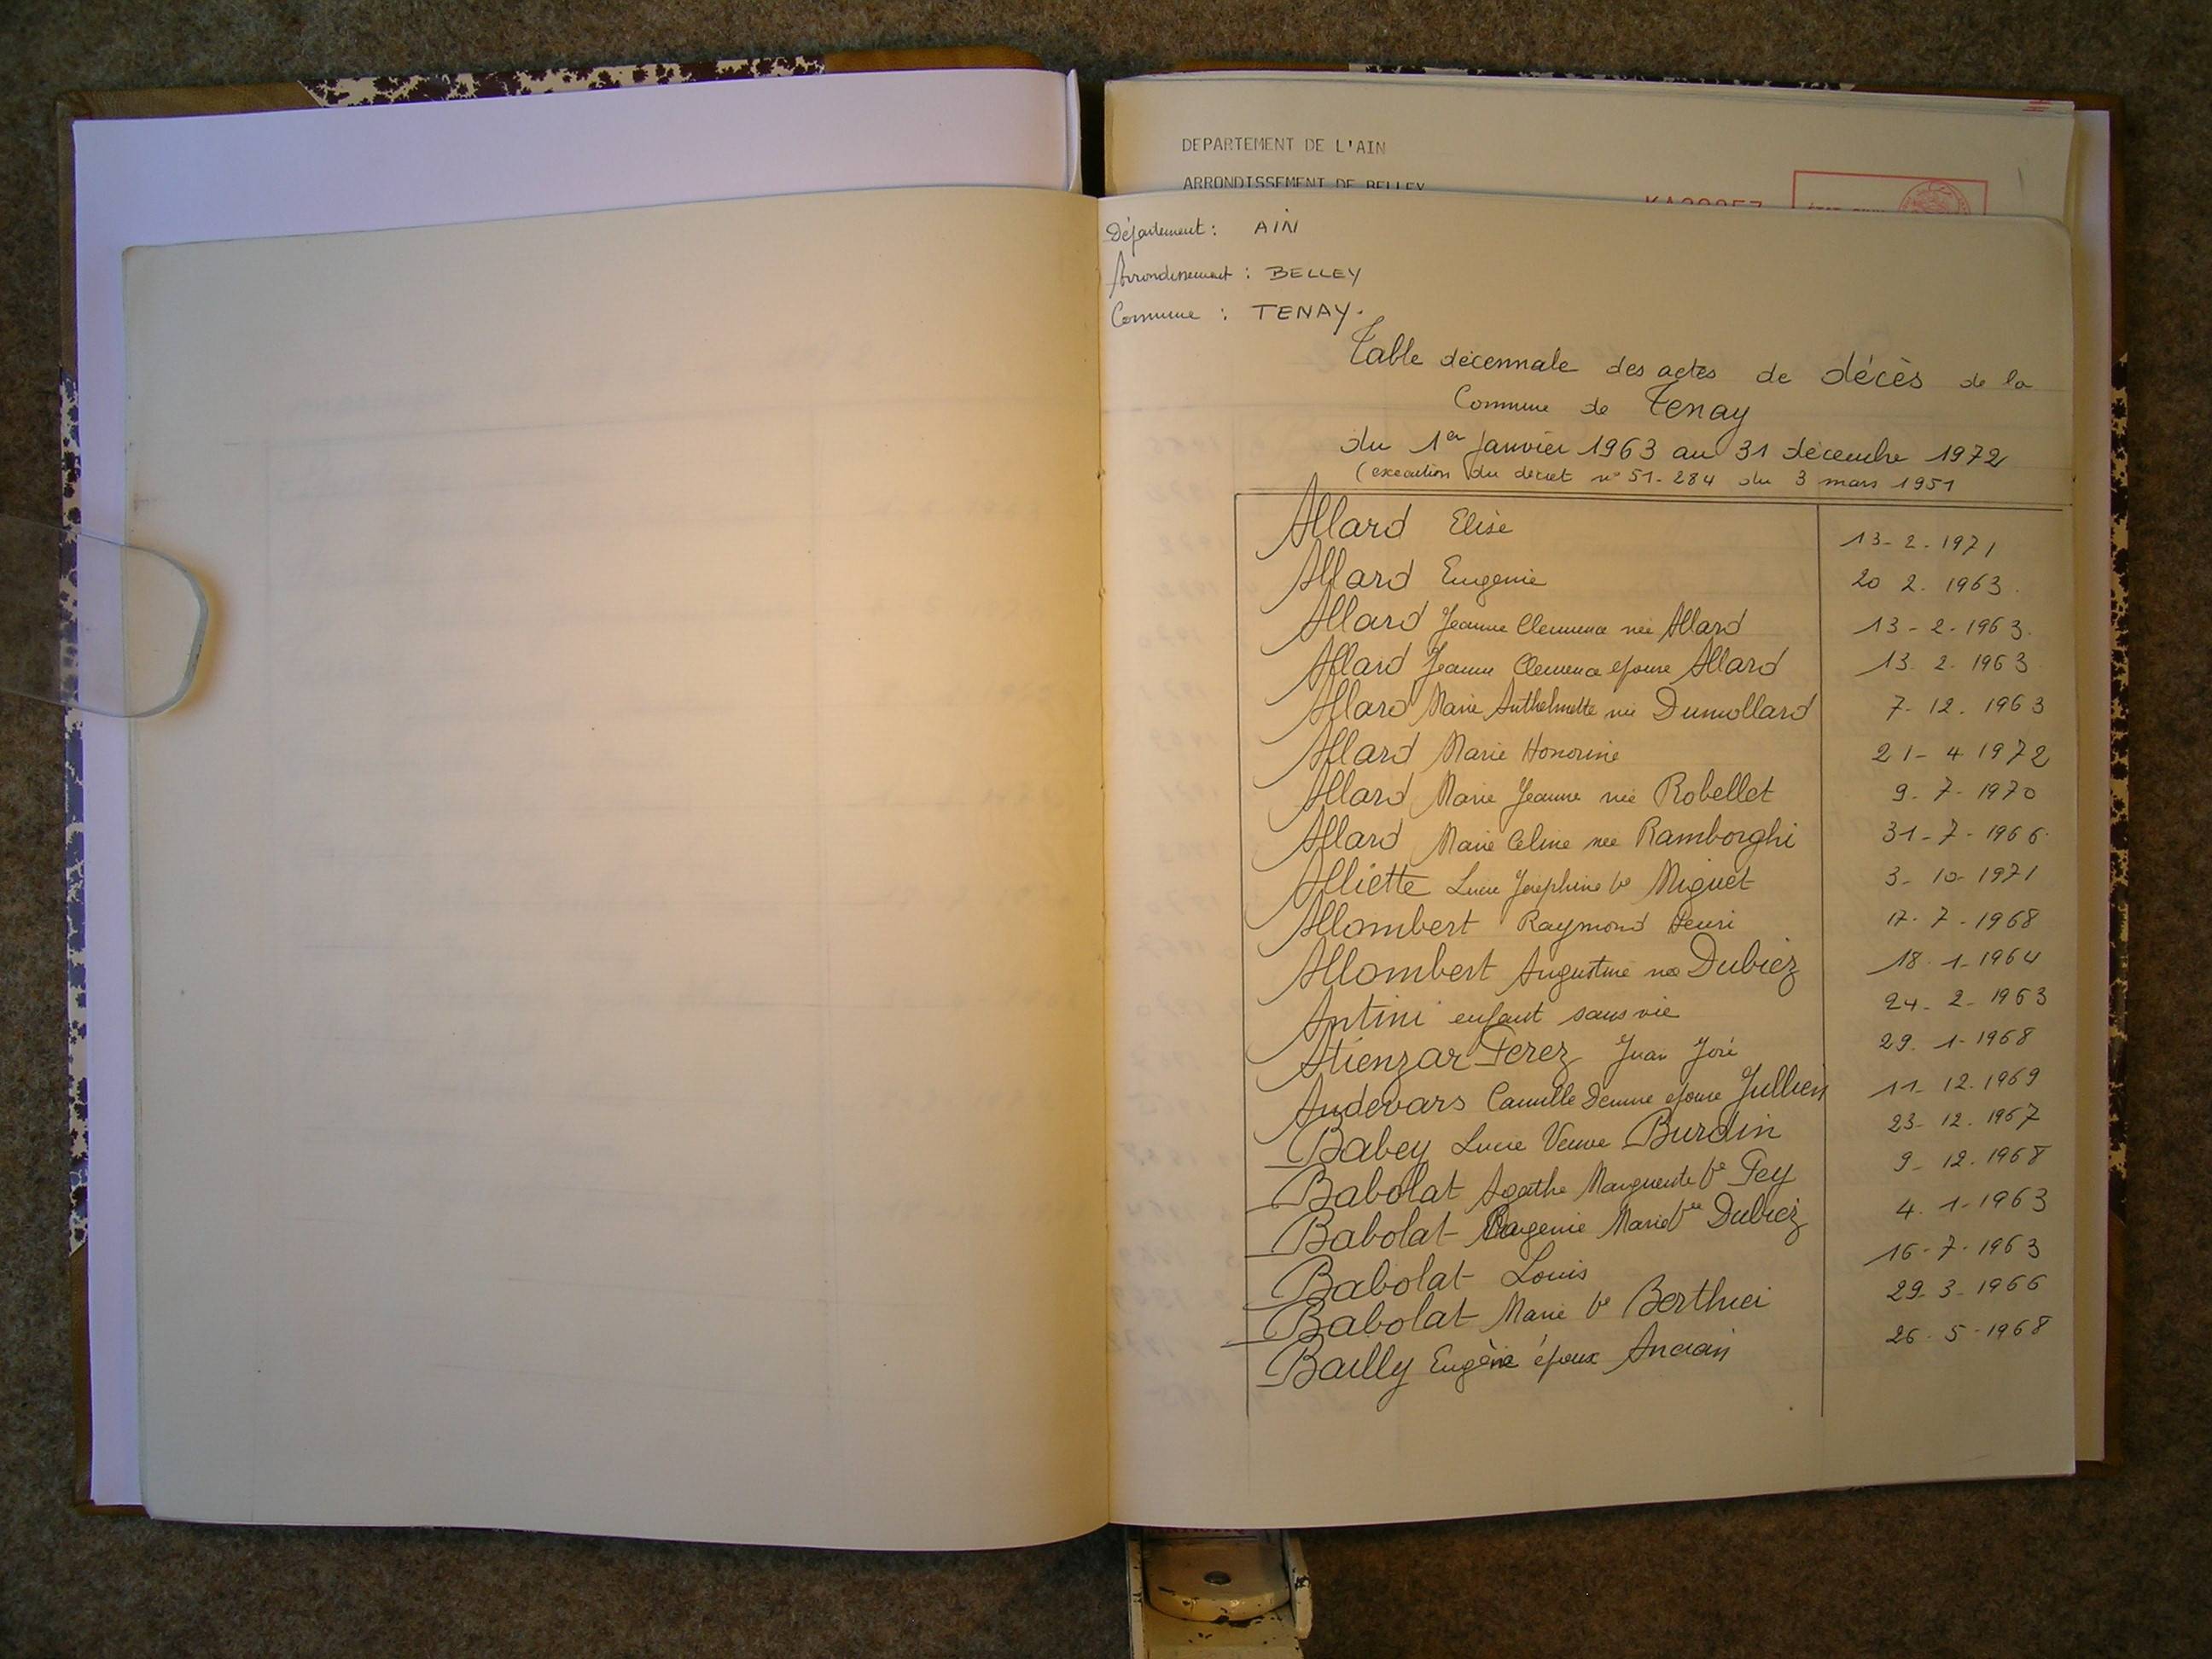 DEPARTEMENT DE L'AIN
ARRONDISSEMENT DE BELLEY
Département : AIN
Arrondissement : BELLEY
Commune : TENAY.
Table décennale des actes de décès de la
Commune de Tenay
du 1er Janvier 1963 au 31 décembre 1972
(execution du décret n° 51-284 du 3 mars 1951
Allard Elise 13-2-1971
Allard Eugenie 20 2. 1963.
Allard Jeanne Clemence née Allard 13-2-1963.
Allard Jeanne Clemence epouse Allard 13-2-1963
Allard Marie Anthelmette née Dumollard 7-12.1963
Allard Marie Honorine 21-4 1972
Allard Marie Jeanne née Robellet 9-7-1970
Allard Marie Celine née Ramborghi 31-7-1966
Alliette Lucie Joséphine Ve Miguet 3-10-1971
Allombert Raymond Henri 17-7-1968
Allombert Augustine née Dubiez 18-1-1964
Antini enfant sans vie 24-2-1963
Atienzar Perez Juan José 29-1-1968
Audevars Camille epouse Jullien 11-12.1969
Babey Lucie Veuve Burdin 23-12.1967
Babolat Agathe Marguerite Ve Fey 9-12.1968
Babolat Eugenie Marie Vve Dubiez 4.1-1963
Babolat Louis 16-7-1963
Babolat Marie Ve Berthier 29-3-1966
Bailly Eugène époux Ancian 26-5-1968